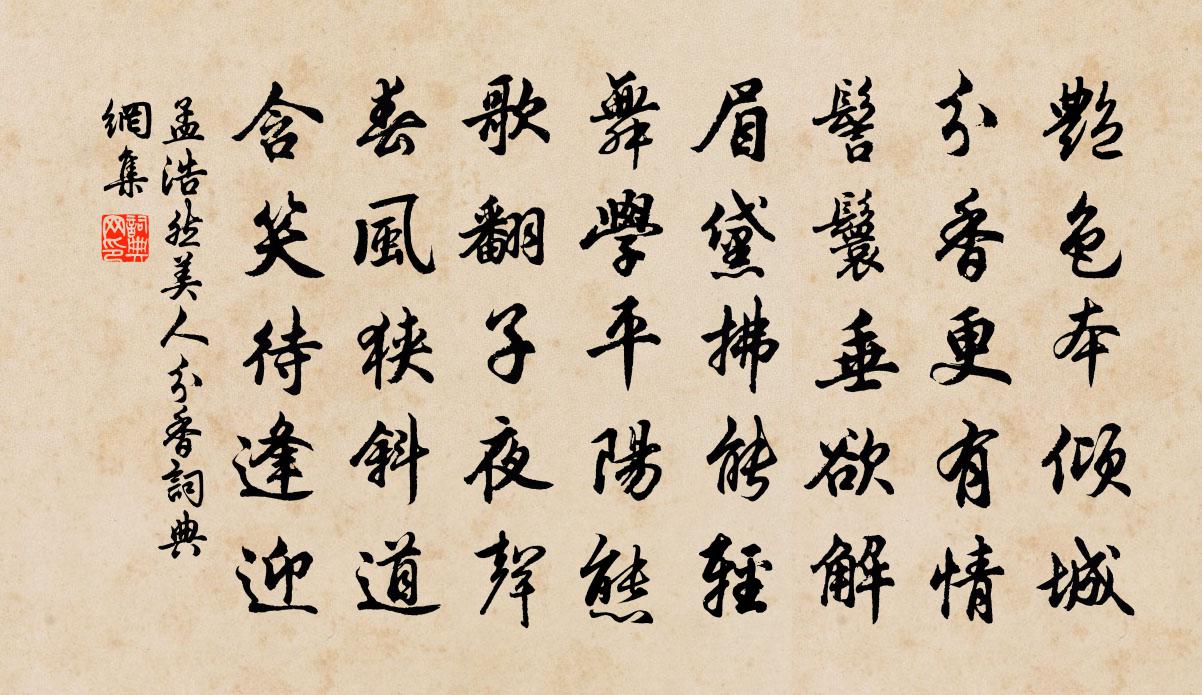 豔色本傾城
分香更有情
髻鬟垂欲解
眉黛拂能輕
舞學平陽態
歌翻子夜聲
春風狹斜道
含笑待逢迎
孟浩然美人分香詞典
網集
詞典
网印